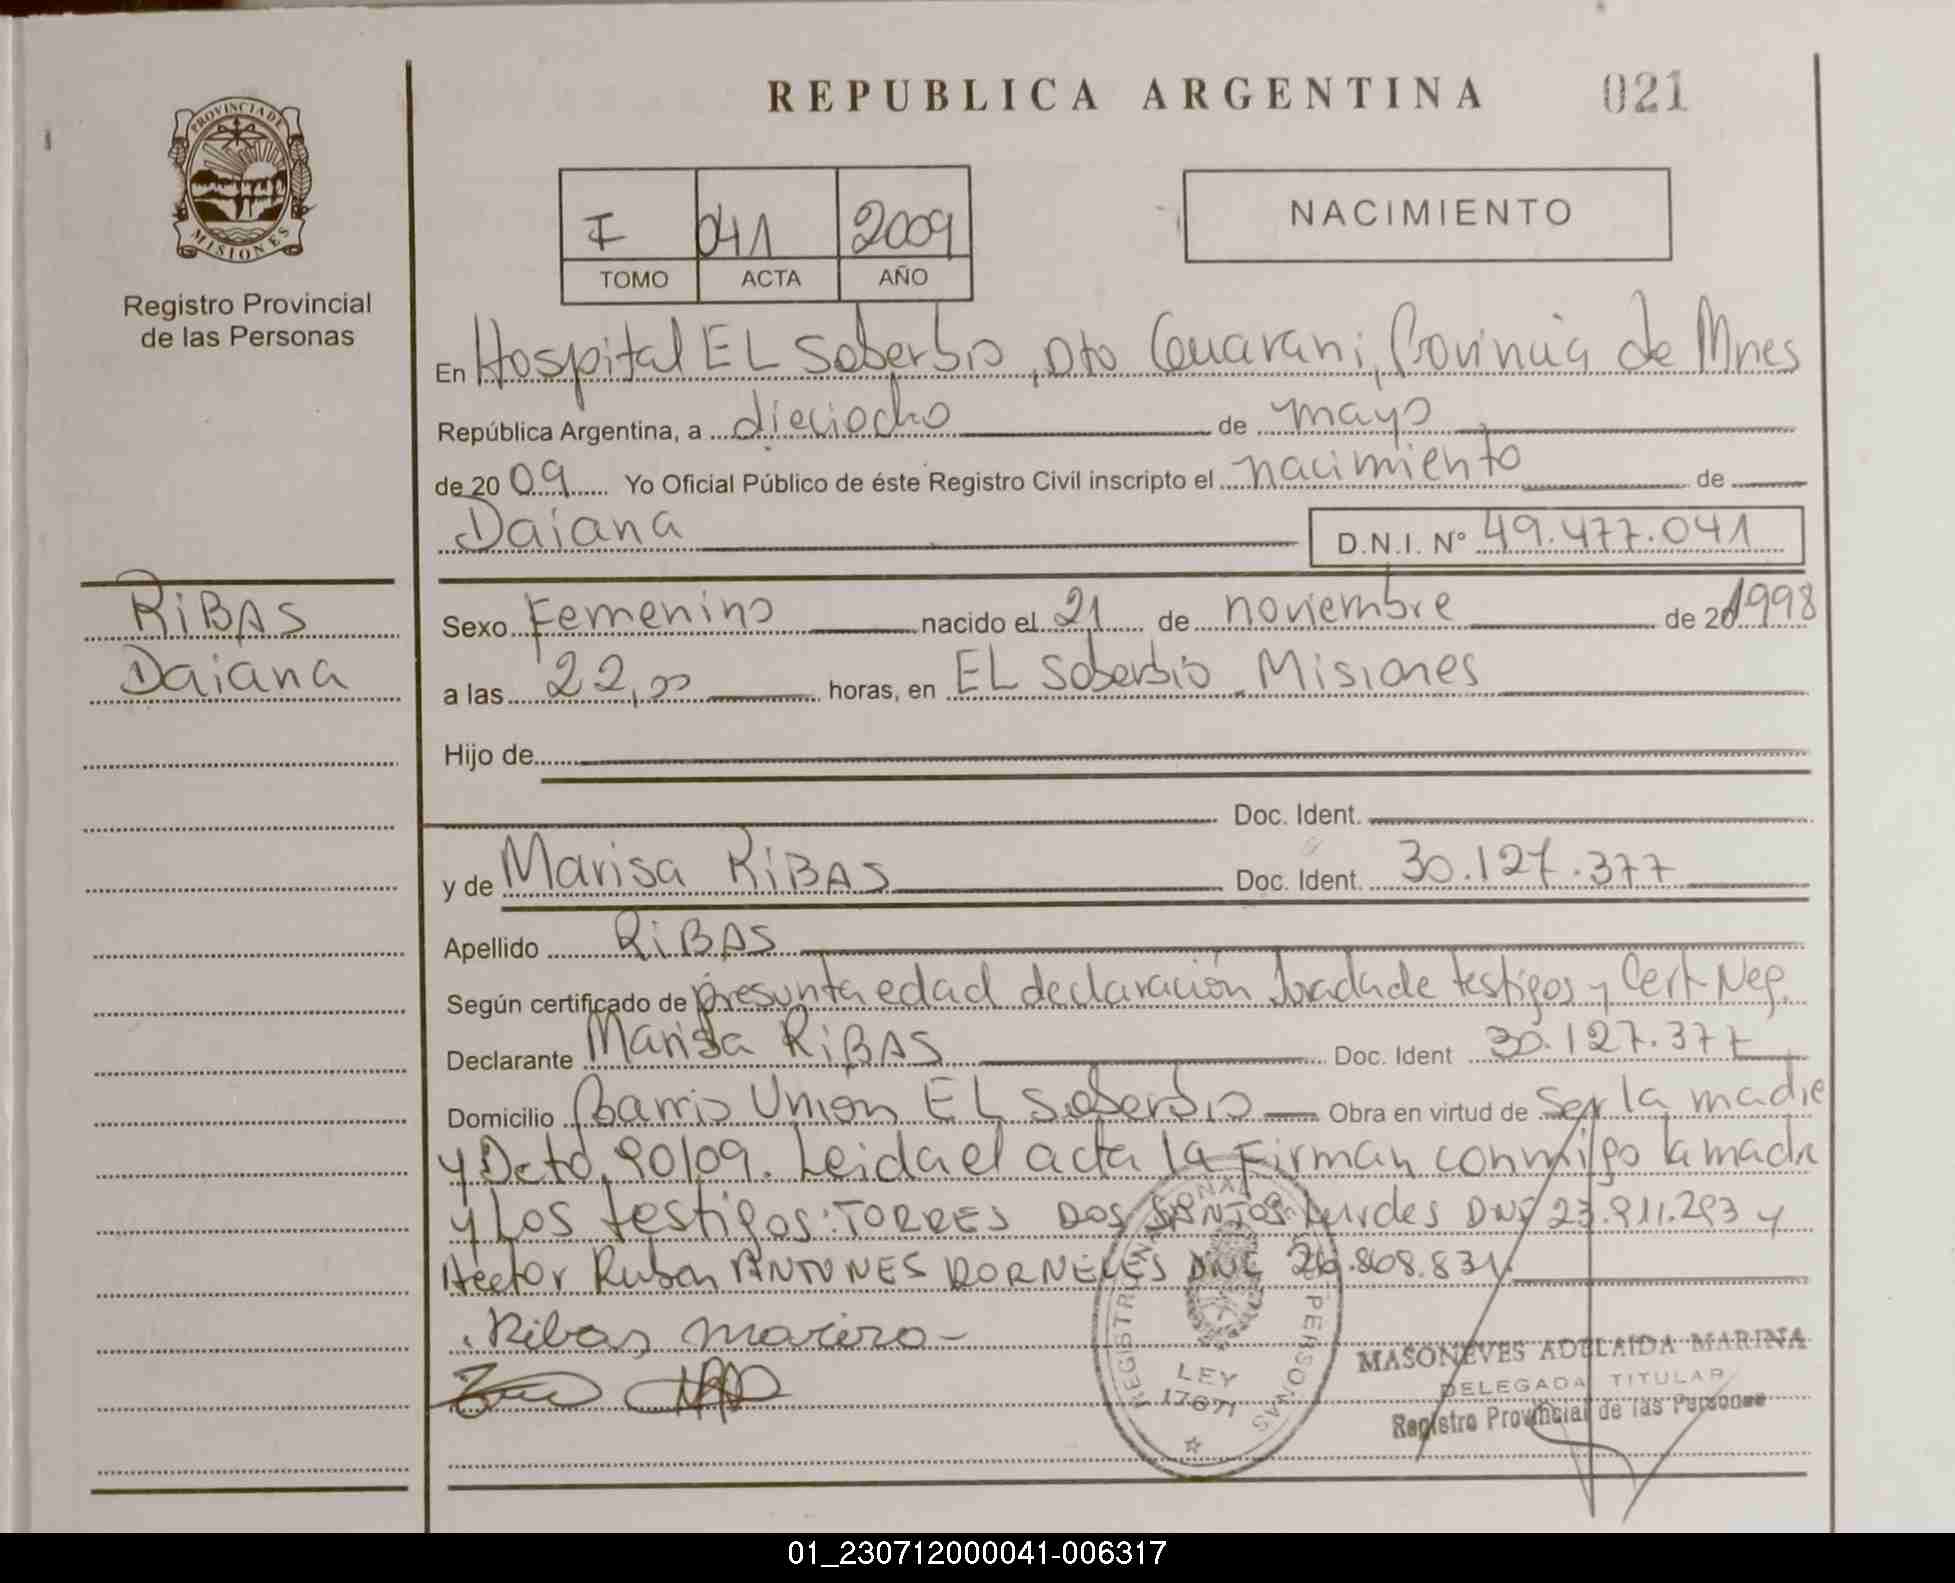 REPUBLICA ARGENTINA 021
PROVINCIA DE
MISIONES
Registro Provincial
de las Personas
I 041 2009
TOMO ACTA AÑO
NACIMIENTO
En Hospital EL Soberbio, Dto Guarani, Provincia de Mnes
República Argentina, a dieciocho de mayo
de 2009 Yo Oficial Público de éste Registro Civil inscripto el nacimiento de
Daiana D.N.I. N° 49.477.041
RiBAS
Daiana
Sexo Femenino nacido el 21 de noviembre de 20 1998
a las 22,00 horas, en EL Soberbio Misiones
Hijo de
Doc. Ident.
y de Marisa RiBAS Doc. Ident. 30.127.377
Apellido RiBAS
Según certificado de presunta edad declaración Jurada de testigos y Cert Neg.
Declarante Marisa RiBAS Doc. Ident 30.127.377
Domicilio Barrio Union EL Soberbio Obra en virtud de Ser la madre
y Dcto 90/09. Leida el acta la Firman conmigo la madre
y Los testigos: TORRES DOS SANTOS Lurdes DNI 23.911.293 y
Hector Ruben ANTUNES DORNELES DNI 26.868.831.
Ribas
REGISTRO NACIONAL DE PERSONAS
LEY
17671
MASONEVES ADELAIDA MARINA
DELEGADA TITULAR
Registro Provincial de las Personas
01_230712000041-006317